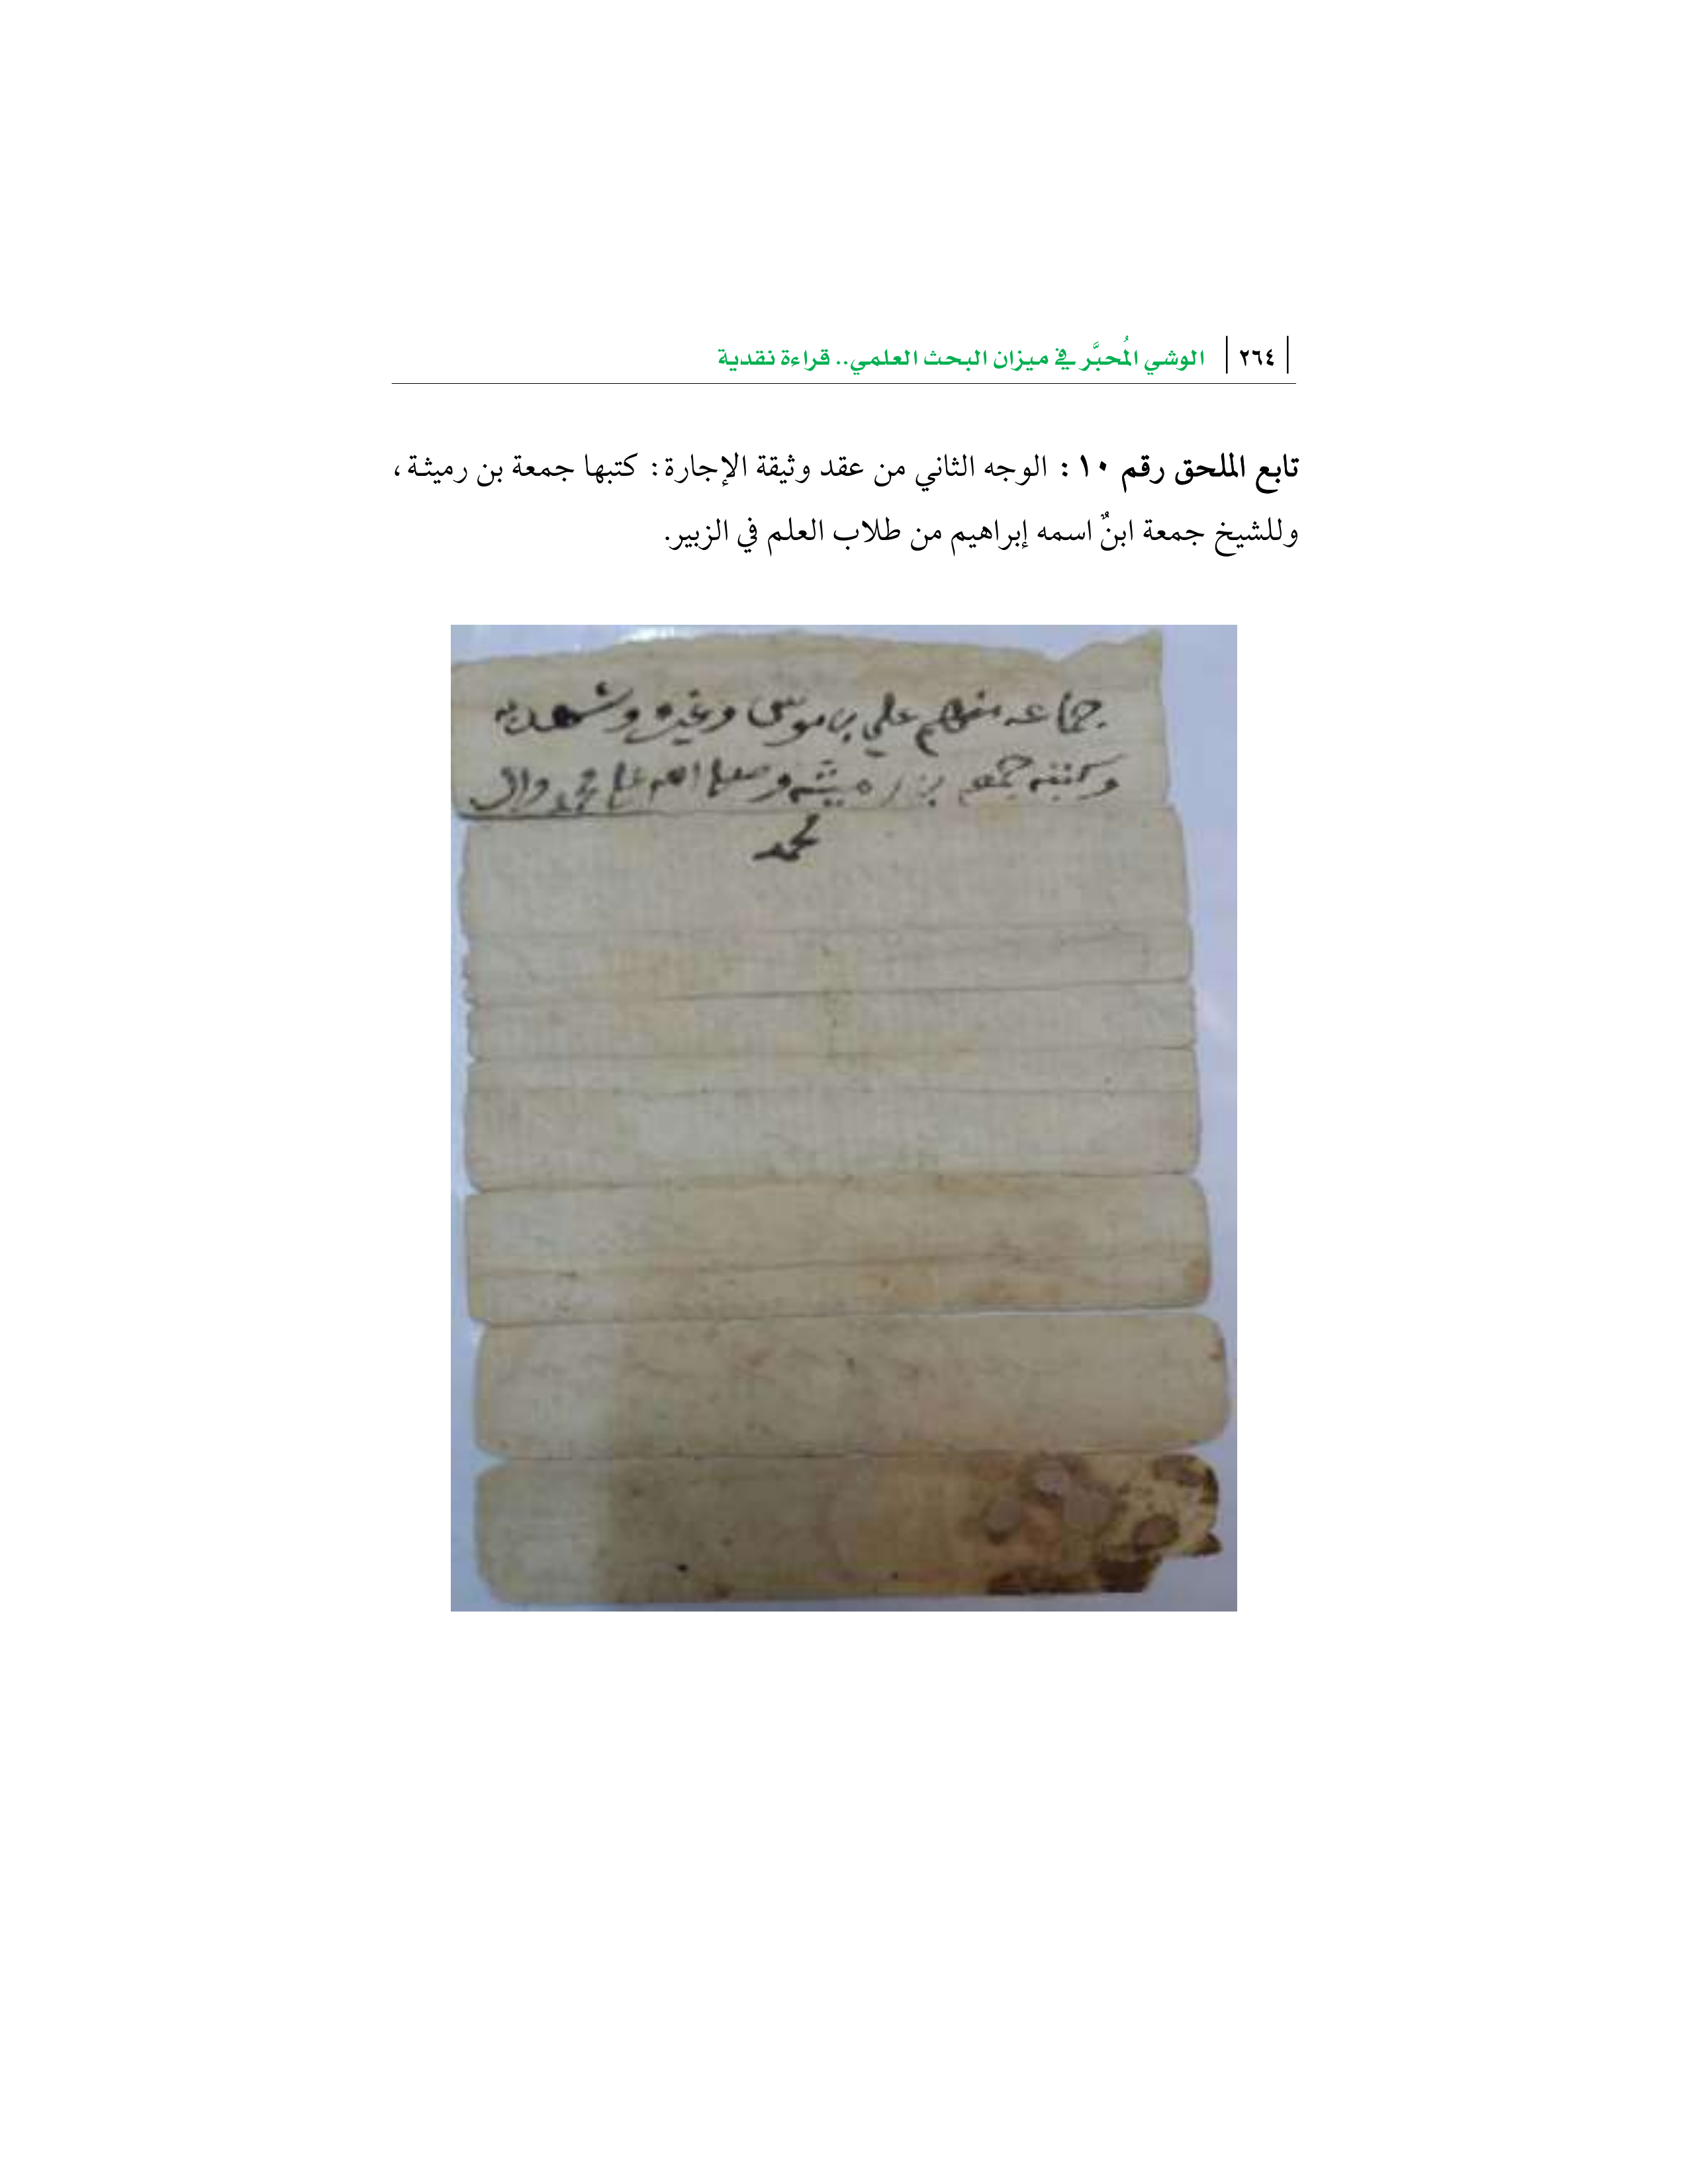 ٢٦٤ الوشي المُحبَّر في ميزان البحث العلمي.. قراءة نقدية
تابع الملحق رقم ١٠ : الوجه الثاني من عقد وثيقة الإجارة: كتبها جمعة بن رميثة،
وللشيخ جمعة ابنٌ اسمه إبراهيم من طلاب العلم في الزبير.
جماعه منهم علي بن موسى وغيره وشهد به
وكتبه جمعه بن رميثه وصلى الله على محمد وال
محمد